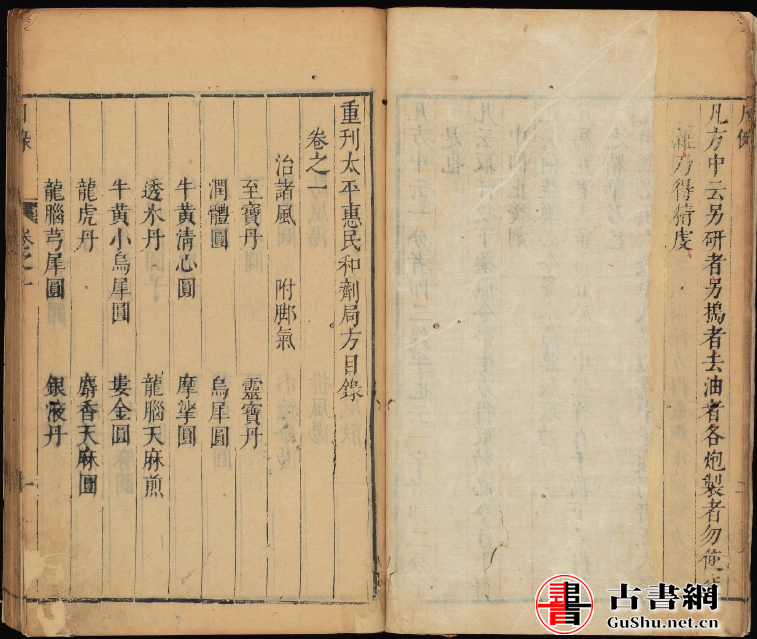 凡方中云另研者另搗者去油者各炮製者勿使
藥方得精虔
重刊太平惠民和劑局方目錄
卷之一
治諸風 附脚氣
至寶丹 靈寶丹
潤體圓 烏犀圓
牛黃清心圓 摩挲圓
透氷丹 龍腦天麻煎
牛黃小烏犀圓 婁金圓
龍虎丹 麝香天麻圓
龍腦芎犀圓 銀液丹
目錄 卷之一 一
書 古書網
GuShu.net.cn